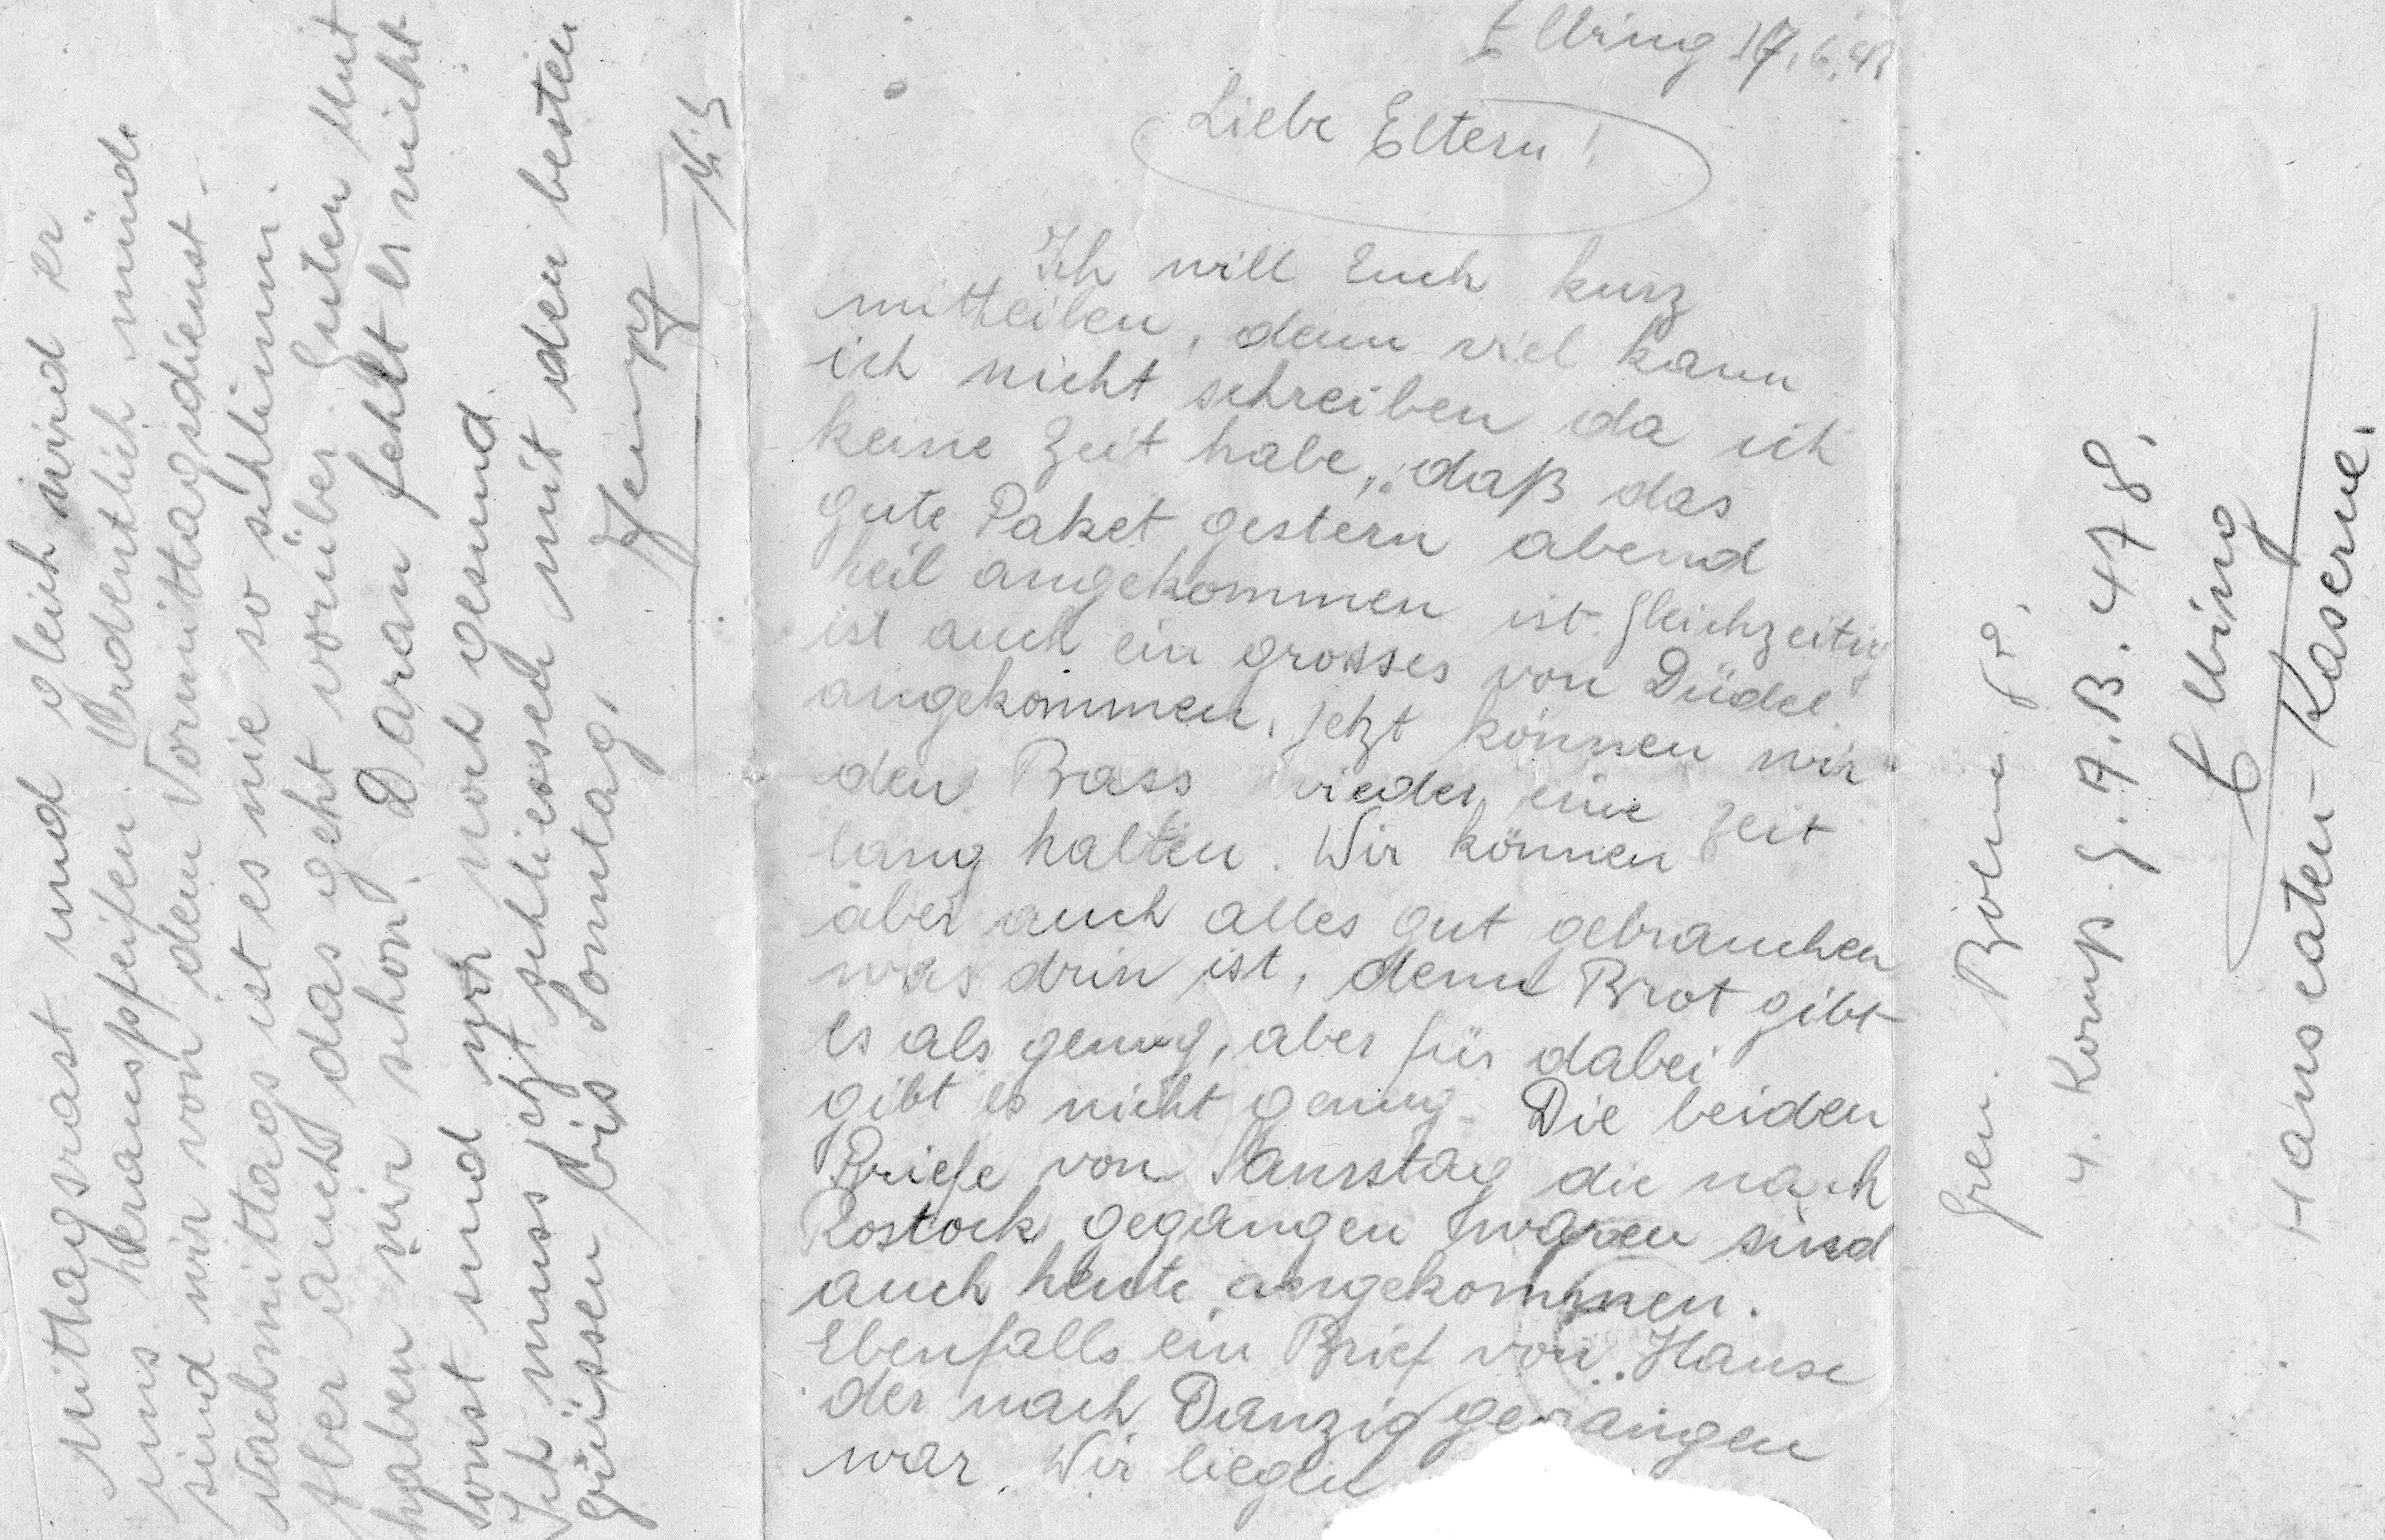 Elbing 17.6.41
Liebe Eltern!
Ich will Euch kurz
mitteilen, denn viel kann
ich nicht schreiben da ich
keine Zeit habe, daß das
gute Paket gestern abend
heil angekommen ist. Gleichzeitig
ist auch ein grosses von Düdel
angekommen, jetzt können wir
den Bass wieder eine Zeit
lang halten. Wir können
aber auch alles gut gebrauchen
was drin ist, denn Brot gibt
es als genug, aber für dabei
gibt es nicht genug. Die beiden
Briefe von Samstag die nach
Rostock gegangen waren sind
auch heute angekommen.
Ebenfalls ein Brief von Hause
der nach Danzig gegangen
war. Wir liegen
Mittagsrast und gleich wird er
uns herauspfeifen. Ordentlich müde
sind wir von dem Vormittagsdienst.
Nachmittags ist es nie so schlimm.
Aber auch das geht vorüber. Guten Mut
haben wir schon. Daran fehlt es nicht
Sonst sind wir noch gesund.
Ich muss jetzt schliessen mit den besten
Grüssen bis Sonntag.
Gren.
4. Komp. G.A.B. 478.
Elbing
Hanseaten-Kaserne.